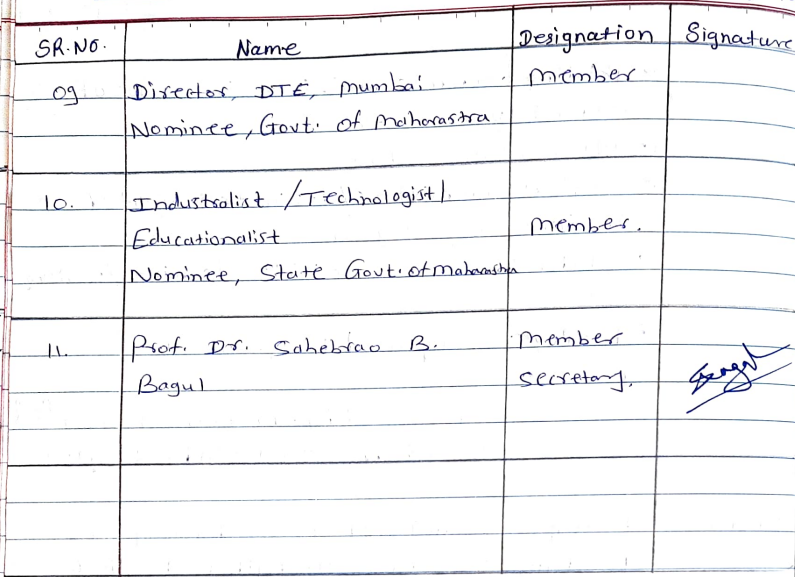 SR.NO. Name Designation Signature
09 Director, DTE, Mumbai Member
Nominee, Govt. of Maharastra
10. Industralist / Technologist /
Educationalist Member.
Nominee, State Govt. of Maharashtra
11. Prof. Dr. Sahebrao B. Member
Bagul Secretary.